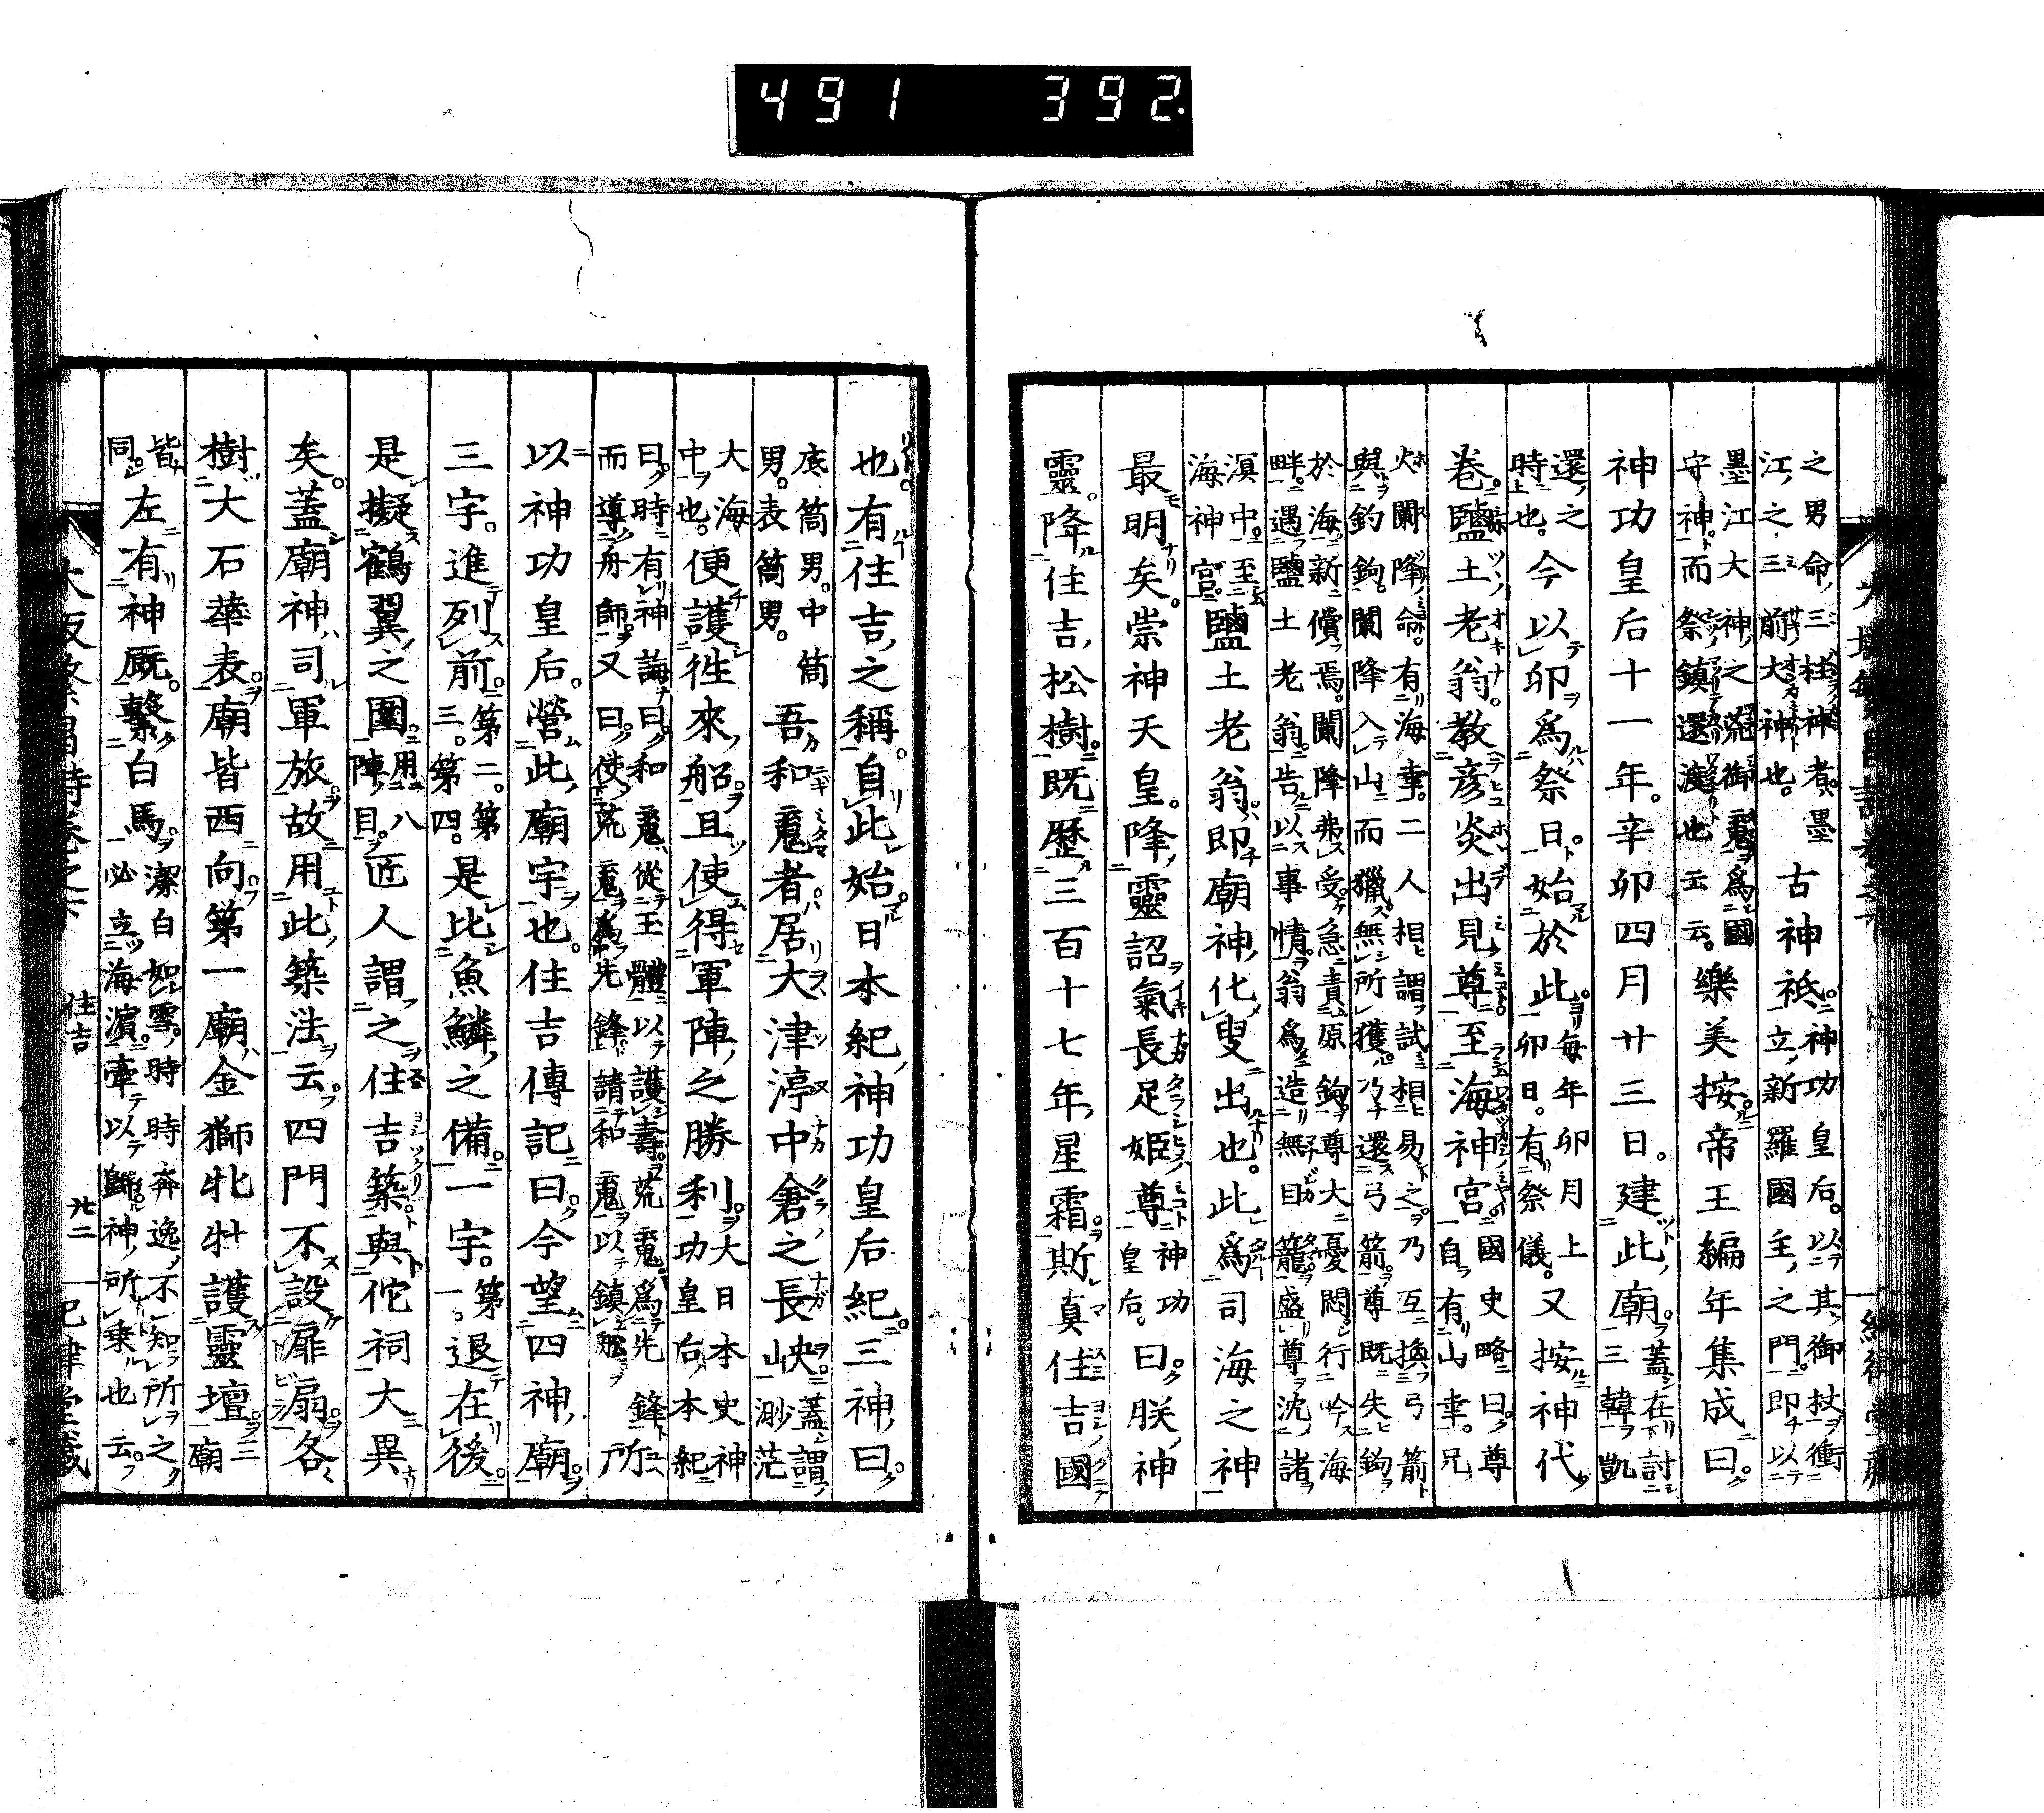 491 392.
之男命三柱神者墨
江之三前大神也
古神祇神功皇后以其御杖衝
立新羅國主之門即以
墨江大神之荒御䰟爲國
守神而祭鎮還渡也云云
樂美按帝王編年集成曰
神功皇后十一年辛卯四月廿三日建此廟
蓋在討
三韓凱
還之
時也
今以卯爲祭日始於此
毎年卯月上
卯日有祭儀
又按神代
卷鹽土老翁教彦炎出見尊至海神宮
國史略曰尊
自有山幸兄
火闌降命有海幸二人相謂試相易之乃互換弓箭
與釣鉤闌降入山而獵無所獲乃還弓箭尊既失鉤
於海新償焉闌降弗受急責原鉤尊大憂悶行吟海
畔遇鹽土老翁告以事情翁爲造無目籠盛尊沈諸
溟中至
海神宮
鹽土老翁即廟神化叟出也此爲司海之神
最明矣崇神天皇降靈詔氣長足姫尊
神功
皇后
曰朕神
靈降住吉松樹既歷三百十七年星霜斯真住吉國
也有住吉之稱自此始日本紀神功皇后紀三神曰
底筒男中筒
男表筒男
吾和䰟者居大津渟中倉之長峽
蓋謂
山渺茫
大海
中也
便護徃來船且使得軍陣之勝利
大日本史神
功皇后本紀
曰時有神誨曰和䰟從玉體以護壽荒䰟爲先鋒
而導舟師又曰使荒䰟爲先鋒請和䰟以鎮船
所
以神功皇后營此廟宇也住吉傳記曰今望四神廟
三宇進列前
第二第
三第四
是比魚鱗之備一宇
第
一
退在後
是擬鶴翼之圍
用八
陣目
匠人謂之住吉築與佗祠大異
矣蓋廟神司軍旅故用此築法云四門不設扉扇各
樹大石華表廟皆西向第一廟金獅牝牡護靈壇
三
廟
皆
同
左有神厩繫白馬
潔白如雪時時奔逸不知所之
必立海濱牽以歸神所乗也云
住吉
廿二